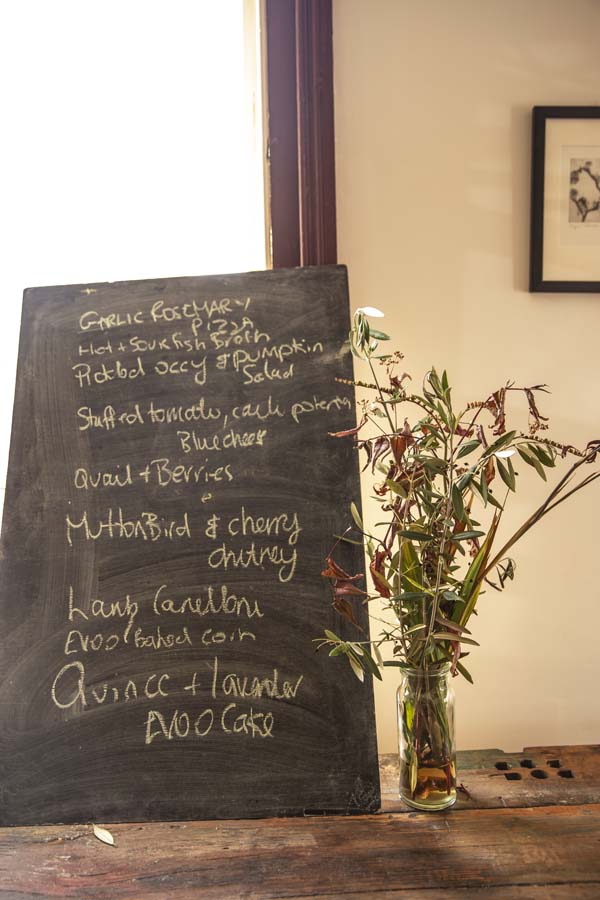 GARLIC ROSEMARY
PIZZA
Hot + Sour fish Broth
Pickled occy & pumpkin
Salad
Stuffed tomato,
Blue cheese
Quail + Berries
Mutton Bird & cherry
chutney
Lamb Canelloni
EVOO Baked corn
Quince + lavender
EVOO Cake